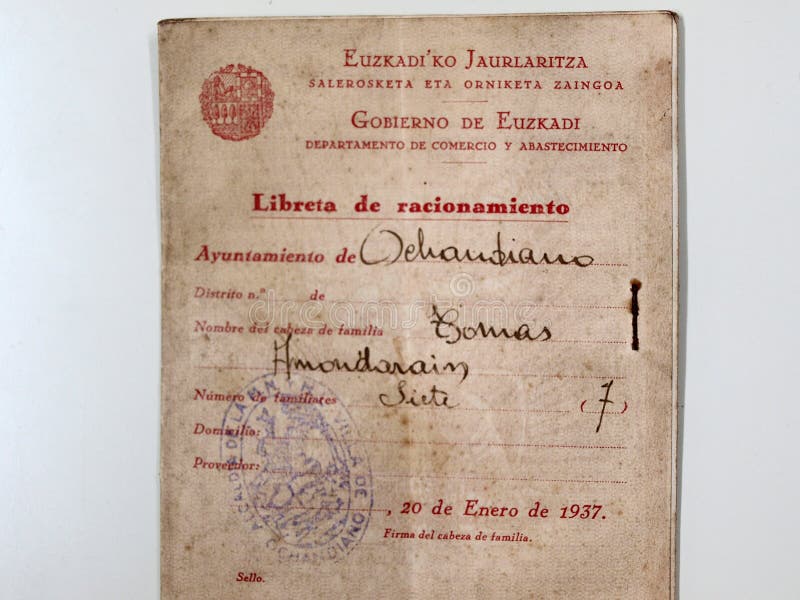 EUZKADI'KO JAURLARITZA
SALEROSKETA ETA ORNIKETA ZAINGOA
GOBIERNO DE EUZKADI
DEPARTAMENTO DE COMERCIO Y ABASTECIMIENTO
Libreta de racionamiento
Ayuntamiento de Ochandiano
Distrito n.º de
Nombre del cabeza de familia Tomas
Amondarain
Número de familiares Siete (7)
Domicilio:
Proveedor:
, 20 de Enero de 1937.
Firma del cabeza de familia.
Sello.
VILLA DE OCHANDIANO
dreamstime